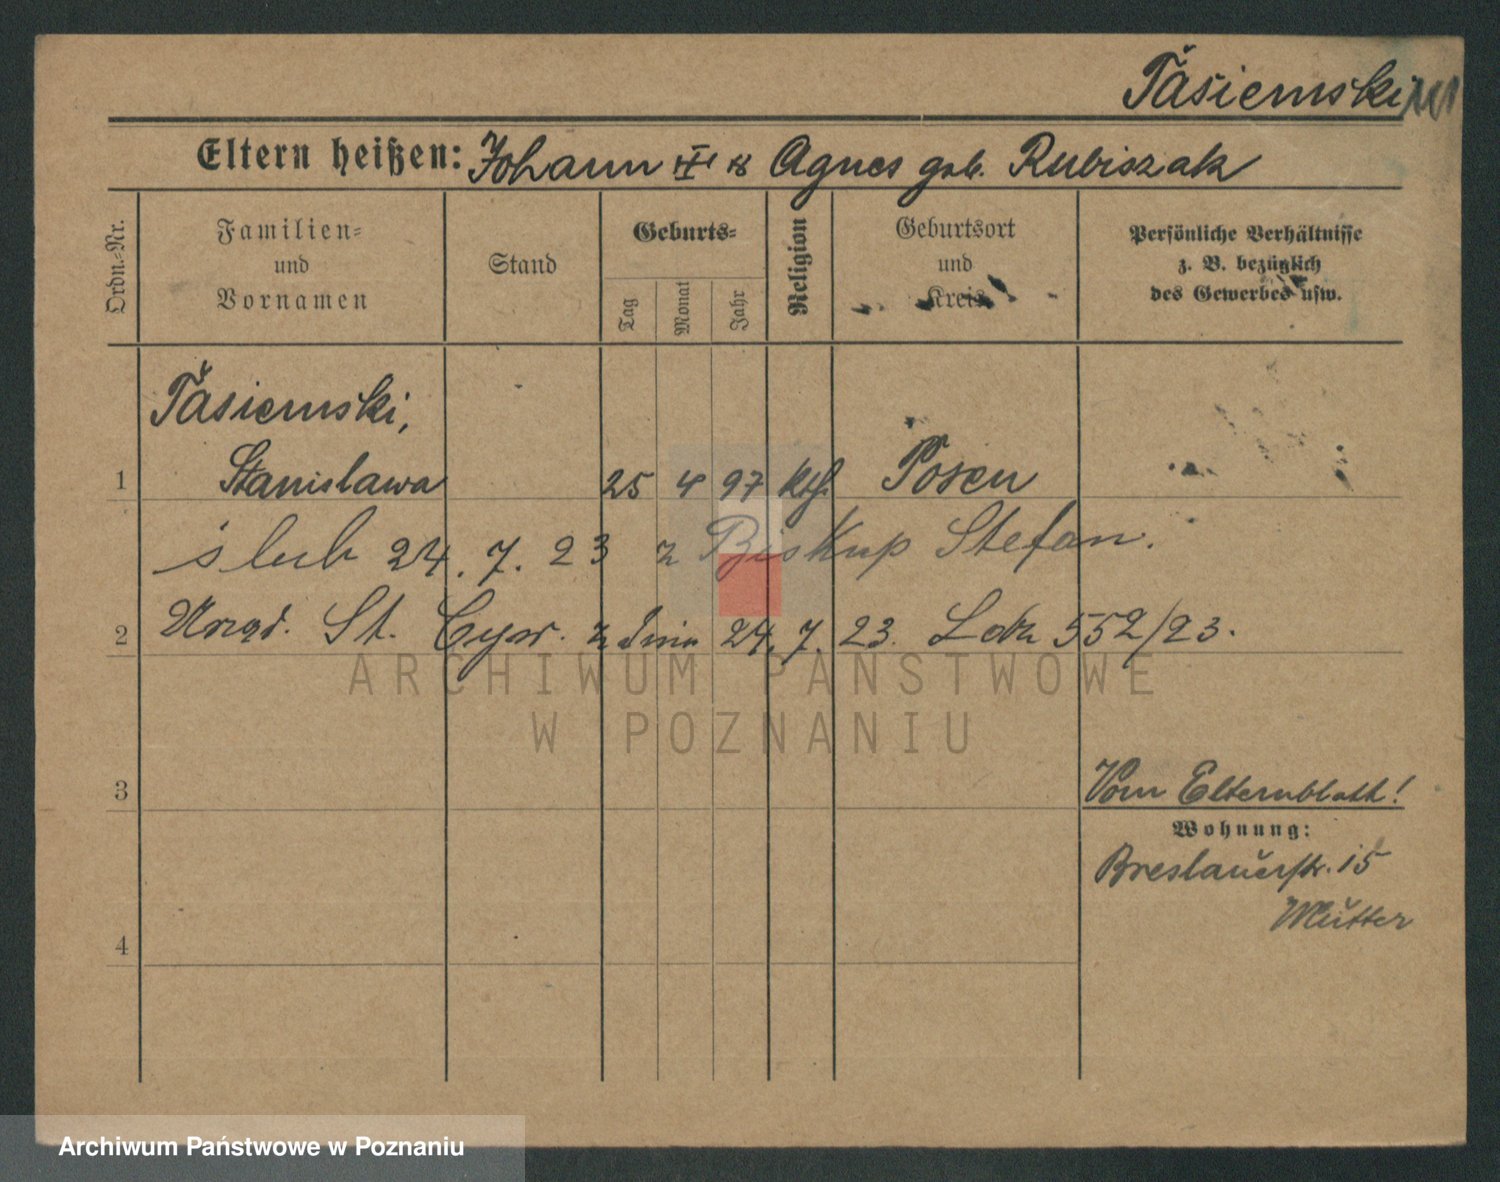 Tasiemski
Eltern heißen: Johann u. Agnes geb. Rubiszak
Ordn.-Nr.
Familien-
und
Vornamen
Stand
Geburts-
Tag
Monat
Jahr
Religion
Geburtsort
und
Kreis
Persönliche Verhältnisse
z. B. bezüglich
des Gewerbes usw.
Tasiemski,
1 Stanislawa 25 4 97 kth. Posen
ślub 24. 7. 23 z Biskup Stefan.
2 Urząd. St. Cyw. z dnia 24. 7. 23. L. dz. 552/23.
3
Vom Elternblatt!
Wohnung:
Breslauerstr. 15
Mutter
4
ARCHIWUM PAŃSTWOWE
W POZNANIU
Archiwum Państwowe w Poznaniu